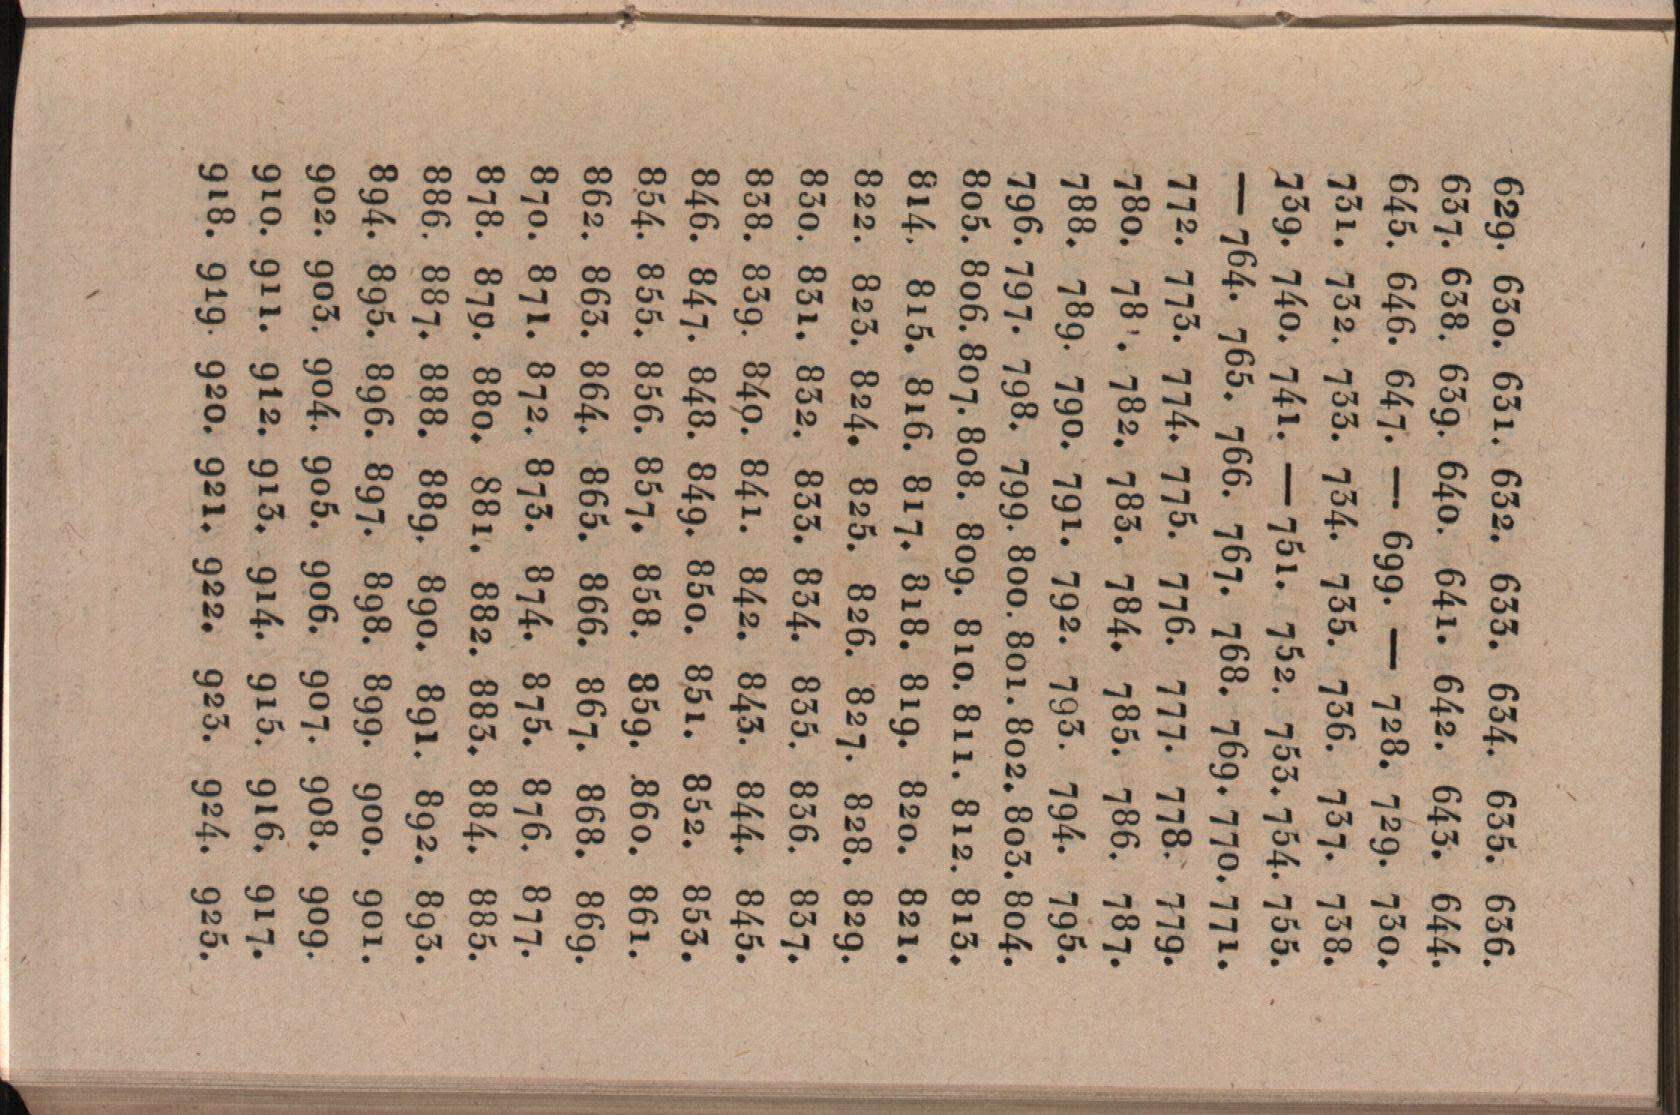 629. 630. 631. 632. 633. 634. 635. 636.
637. 638. 639. 640. 641. 642. 643. 644.
645. 646. 647. — 699. — 728. 729. 730.
731. 732. 733. 734. 735. 736. 737. 738.
739. 740. 741. — 751. 752. 753. 754. 755.
— 764. 765. 766. 767. 768. 769. 770. 771.
772. 773. 774. 775. 776. 777. 778. 779.
780. 781. 782. 783. 784. 785. 786. 787.
788. 789. 790. 791. 792. 793. 794. 795.
796. 797. 798. 799. 800. 801. 802. 803. 804.
805. 806. 807. 808. 809. 810. 811. 812. 813.
814. 815. 816. 817. 818. 819. 820. 821.
822. 823. 824. 825. 826. 827. 828. 829.
830. 831. 832. 833. 834. 835. 836. 837.
838. 839. 840. 841. 842. 843. 844. 845.
846. 847. 848. 849. 850. 851. 852. 853.
854. 855. 856. 857. 858. 859. 860. 861.
862. 863. 864. 865. 866. 867. 868. 869.
870. 871. 872. 873. 874. 875. 876. 877.
878. 879. 880. 881. 882. 883. 884. 885.
886. 887. 888. 889. 890. 891. 892. 893.
894. 895. 896. 897. 898. 899. 900. 901.
902. 903. 904. 905. 906. 907. 908. 909.
910. 911. 912. 913. 914. 915. 916. 917.
918. 919. 920. 921. 922. 923. 924. 925.